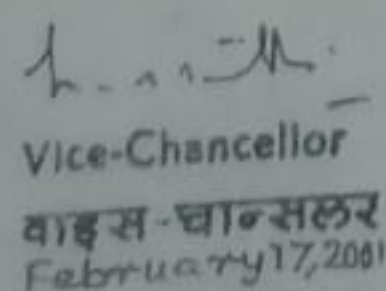 Vice-Chancellor
वाइस-चान्सलर
February 17, 2001